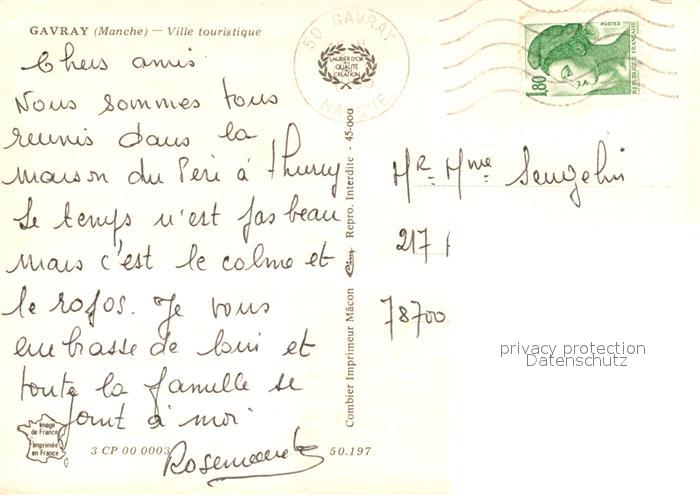 GAVRAY (Manche) — Ville touristique
50 GAVRAY
MANCHE
LAURIER D'OR
DE LA
QUALITÉ
DE LA
CRÉATION
1,80
POSTES
REPUBLIQUE FRANÇAISE
Chers amis
Nous sommes tous
reunis dans la
maison du Peri à
Le temps n'est pas beau
mais c'est le calme et
le repos. Je vous
embrasse de loin et
toute la famille se
joint à moi
Rosemonde
Mr. Mme
217
78700
Combier Imprimeur Mâcon Cim Repro. Interdite - 45-000
Image
de France
Imprimée
en France
3 CP 00 0003
50.197
privacy protection
Datenschutz